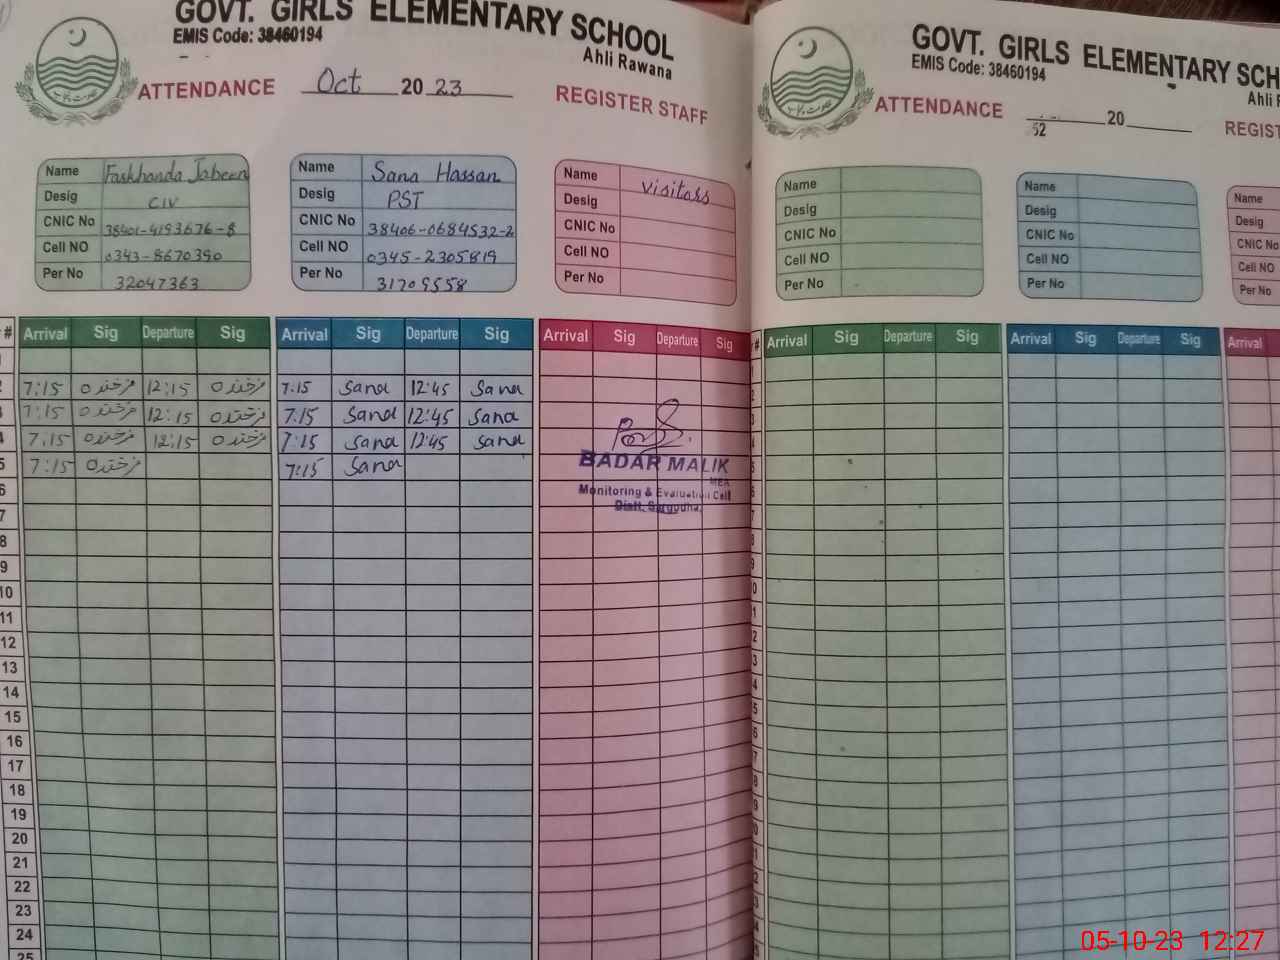 GOVT. GIRLS ELEMENTARY SCHOOL
EMIS Code: 38460194
Ahli Rawana
ATTENDANCE Oct 2023 REGISTER STAFF
Name Farkhanda Jabeen
Desig CIV
CNIC No 38401-4193676-8
Cell NO 0343-8670390
Per No 32047363
Name Sana Hassan
Desig PST
CNIC No 38406-0684532-2
Cell NO 0345-2305819
Per No 31709558
Name Visitors
Desig
CNIC No
Cell NO
Per No
# Arrival Sig Departure Sig Arrival Sig Departure Sig Arrival Sig Departure Sig
1
2 7:15 فرخندہ 12:15 فرخندہ 7:15 Sana 12:45 Sana
3 7:15 فرخندہ 12:15 فرخندہ 7:15 Sana 12:45 Sana
4 7:15 فرخندہ 12:15 فرخندہ 7:15 Sana 12:45 Sana
5 7:15 فرخندہ 7:15 Sana
BADAR MALIK
MEA
Monitoring & Evaluation Cell
Distt. Sargodha.
6
7
8
9
10
11
12
13
14
15
16
17
18
19
20
21
22
23
24
25
GOVT. GIRLS ELEMENTARY SCH
EMIS Code: 38460194
Ahli R
ATTENDANCE 20 REGIST
52
Name
Desig
CNIC No
Cell NO
Per No
Name
Desig
CNIC No
Cell NO
Per No
Name
Desig
CNIC No
Cell NO
Per No
# Arrival Sig Departure Sig Arrival Sig Departure Sig Arrival
05-10-23 12:27